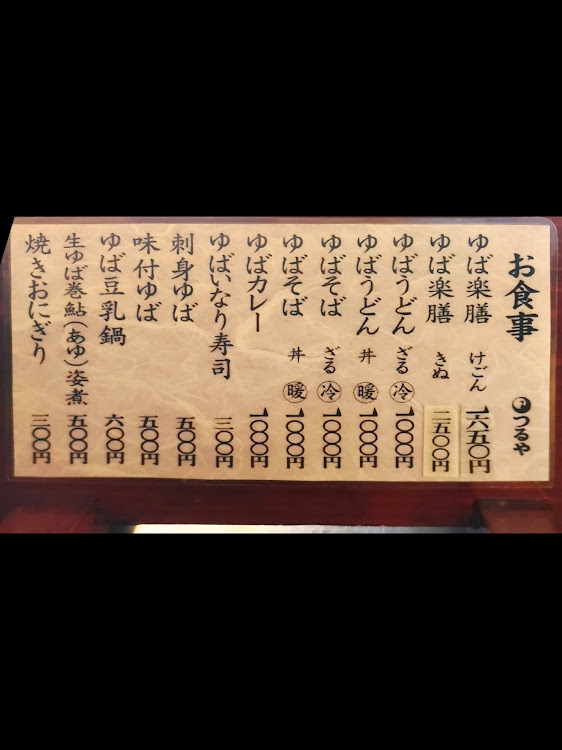 お食事
つるや
ゆば楽膳 けごん 一六五〇円
ゆば楽膳 きぬ 二五〇〇円
ゆばうどん ざる 冷 1000円
ゆばうどん 丼 暖 1000円
ゆばそば ざる 冷 1000円
ゆばそば 丼 暖 1000円
ゆばカレー 1000円
ゆばいなり寿司 三〇〇円
刺身ゆば 五〇〇円
味付ゆば 五〇〇円
ゆば豆乳鍋 六〇〇円
生ゆば巻鮎(あゆ)姿煮 五〇〇円
焼きおにぎり 三〇〇円